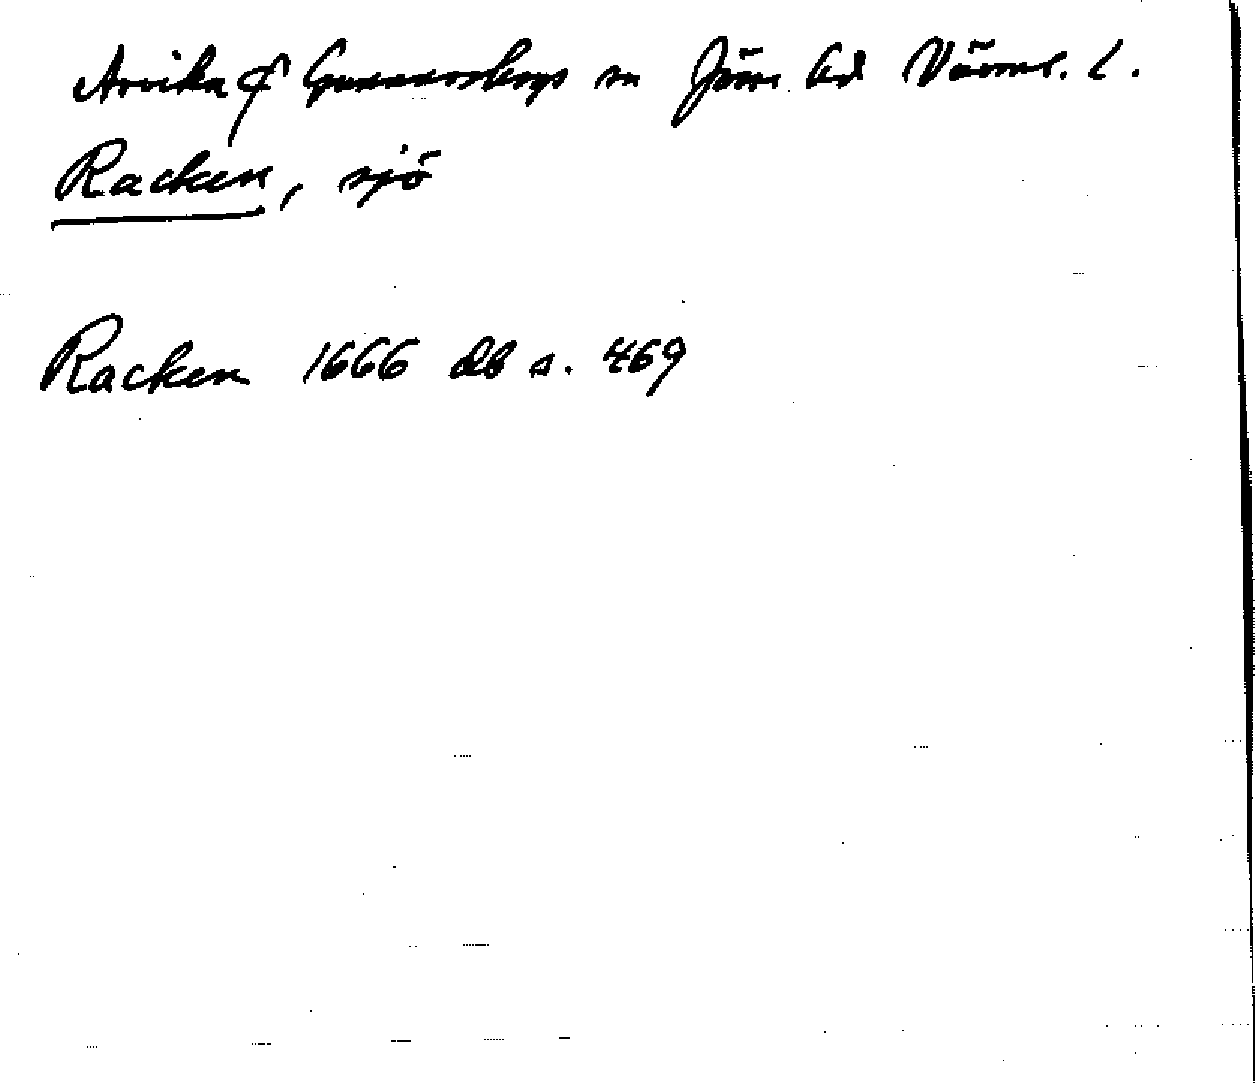 Arvika & Gunnarskogs sn Jösse hd Värml. l.
Racken, sjö
Racken 1666 db s. 469